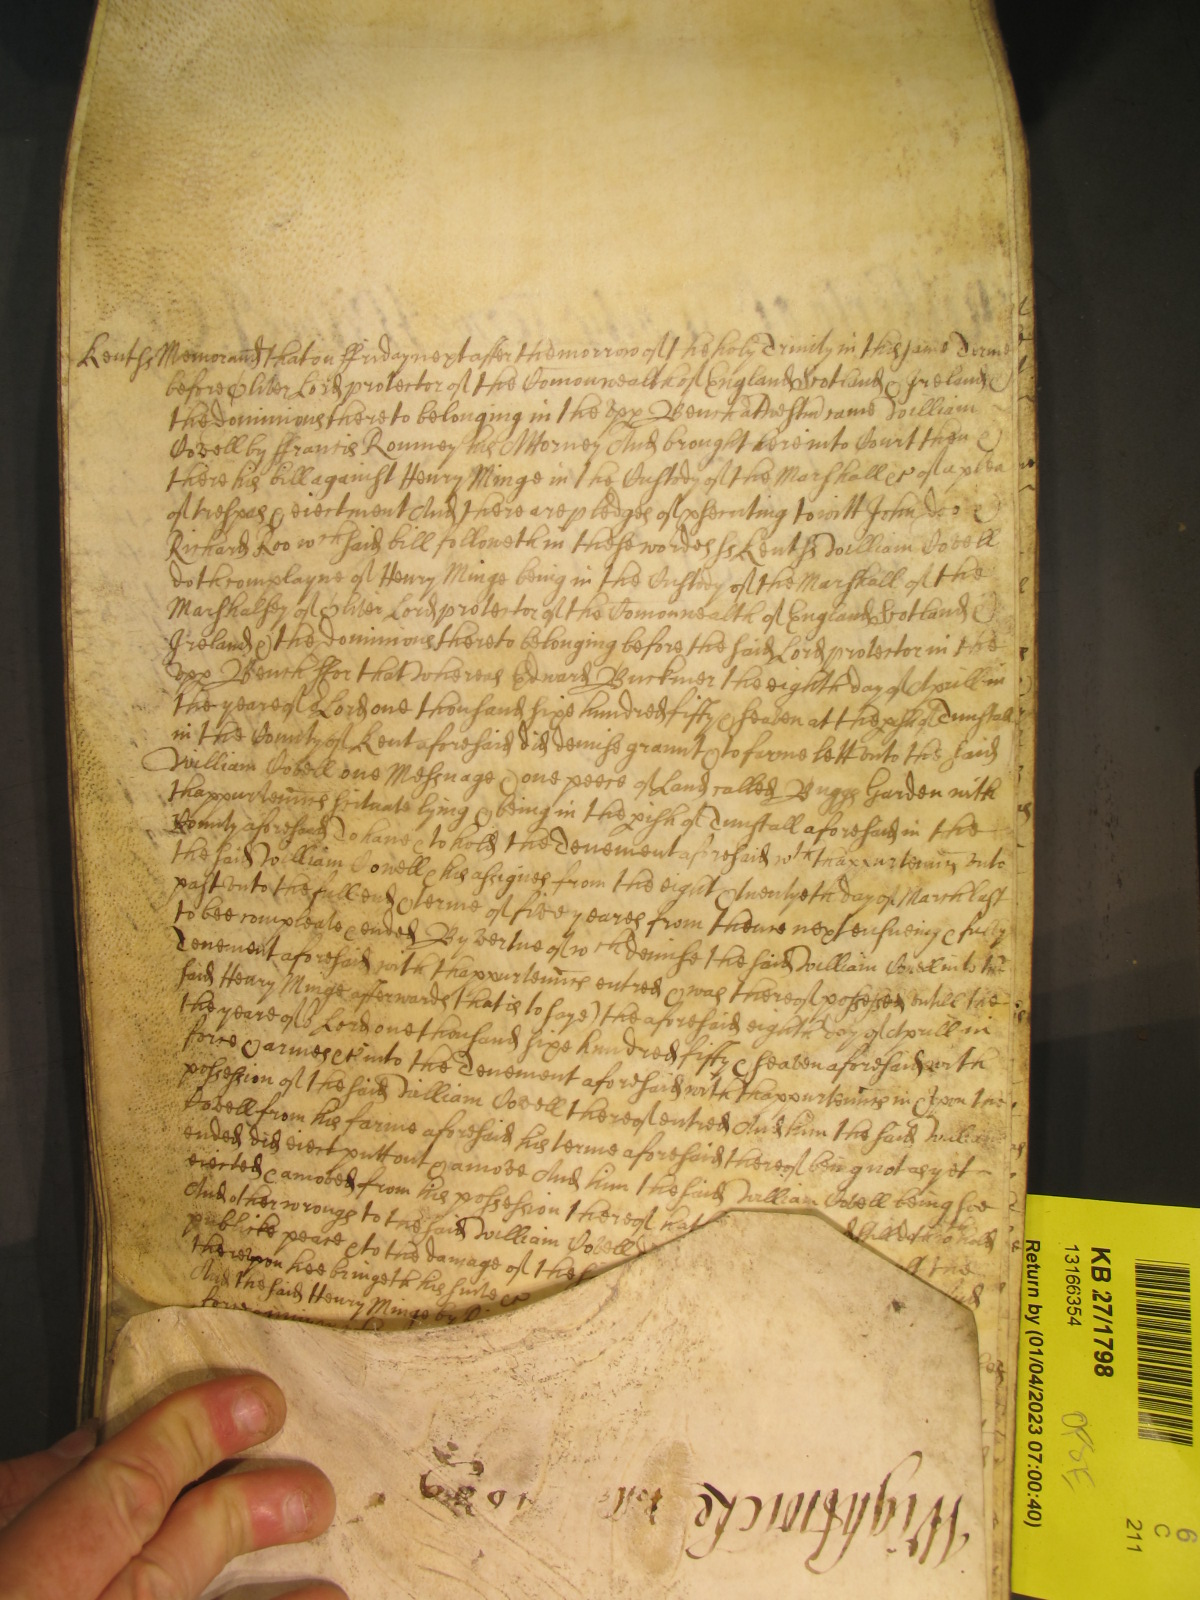 Kent ss Memorand that on ffriday next after the morrow of the holy Trinity in this same Terme
before Oliver Lord protector of the Comonwealth of England Scotland & Ireland &
the dominions thereto belonging in the upp Bench at Westm came William
Covell by ffrancis Romney his Attorney And brought here into Court then &
there his bill against Henry Minge in the Custody of the Marshall &c of a plea
of trespas & eiectment And there are pledges of psecuting to witt John doo &
Richard Roo wch said bill followeth in these wordes ss Kent ss William Covell
doth complayne of Henry Minge being in the Custody of the Marshall of the
Marshalsey of Oliver Lord protector of the Comonwealth of England Scotland &
Ireland & the dominions thereto belonging before the said Lord protector in the
upp Bench ffor that whereas Edward Buckmer the eighth day of Aprill in
the yeare of or Lord one thousand sixe hundred fifty & seaven at the pish of Tunstall
in the County of Kent aforesaid did demise graunt & to farme lett unto the said
William Covell one Messuage & one peece of Land called Buggs Garden with
thappurtenncs scituate lying & being in the pish of Tunstall aforesaid in the
County aforesaid To have & to hold the Tenement aforesaid wth thappurtenncs unto
the said William Covell & his assignes from the eight & twentyeth day of March last
past unto the full end & terme of five yeares from thence next ensueing & fully
to bee compleate & ended By vertue of wch demise the said William Covell into the
Tenement aforesaid with thappurtenncs entred & was thereof possessed untill the
said Henry Minge afterwards (that is to saye) the aforesaid eighth day of Aprill in
the yeare of or Lord one thousand sixe hundred fifty & seaven aforesaid with
force & armes &c into the Tenement aforesaid with thappurtenncs in & upon the
possession of the said William Covell thereof entred And him the said William
Covell from his farme aforesaid his terme aforesaid thereof being not as yet
ended did eiect putt out & amove And him the said William Covell being soe
eiected & amoved from his possession thereof hath
And other wrongs to the said William Covell
publike peace & to the damage of the
thereupon hee bringeth his suite &c
And the said Henry Minge by
Wightwicke
KB 27/1798
13166354
Return by (01/04/2023 07:00:40)
6
C
211